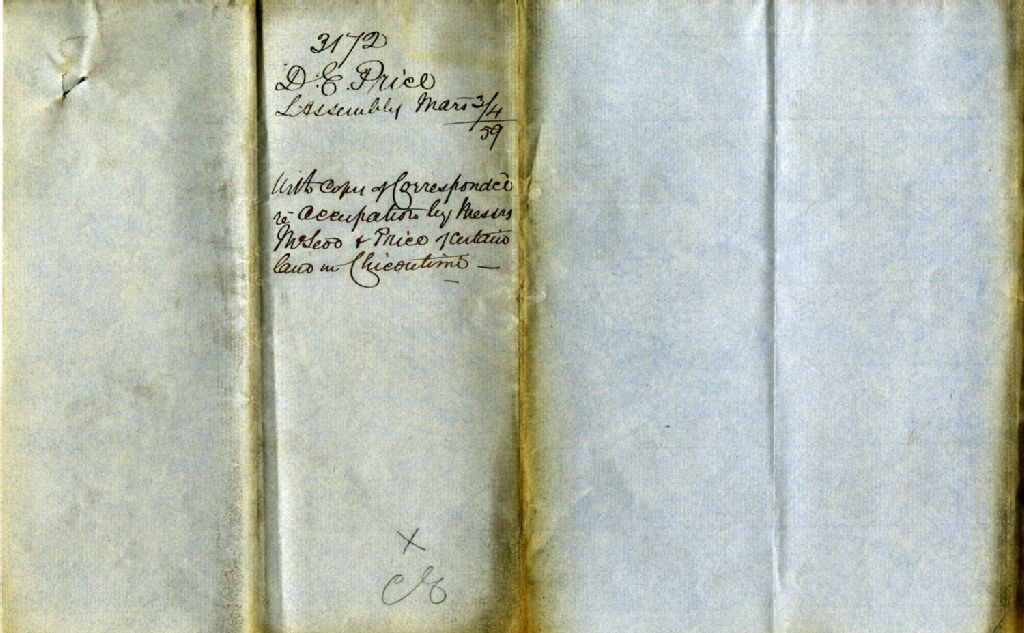 3172
D. E. Price
L Assembly Mar 3/4
59
With copy of Correspondce
re occupation by Messrs
McLeod & Price of certain
land in Chicoutimi —
X